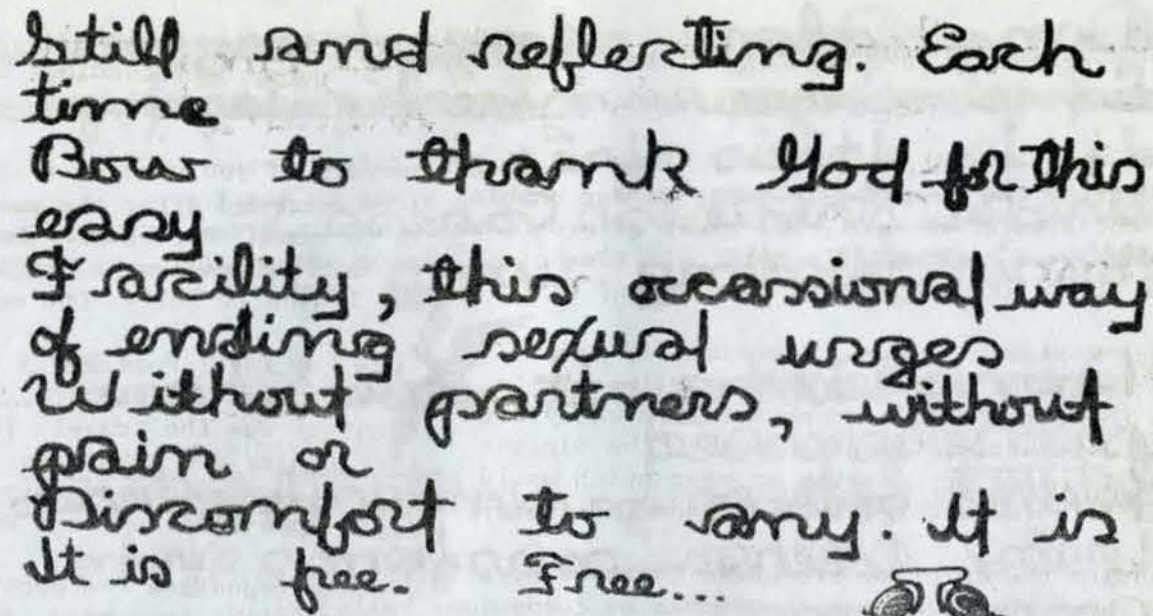 Still and reflecting. Each
time
Bow to thank God for this
easy
Facility, this occassional way
of ending sexual urges
Without partners, without
pain or
Discomfort to any. It is
It is free. Free...